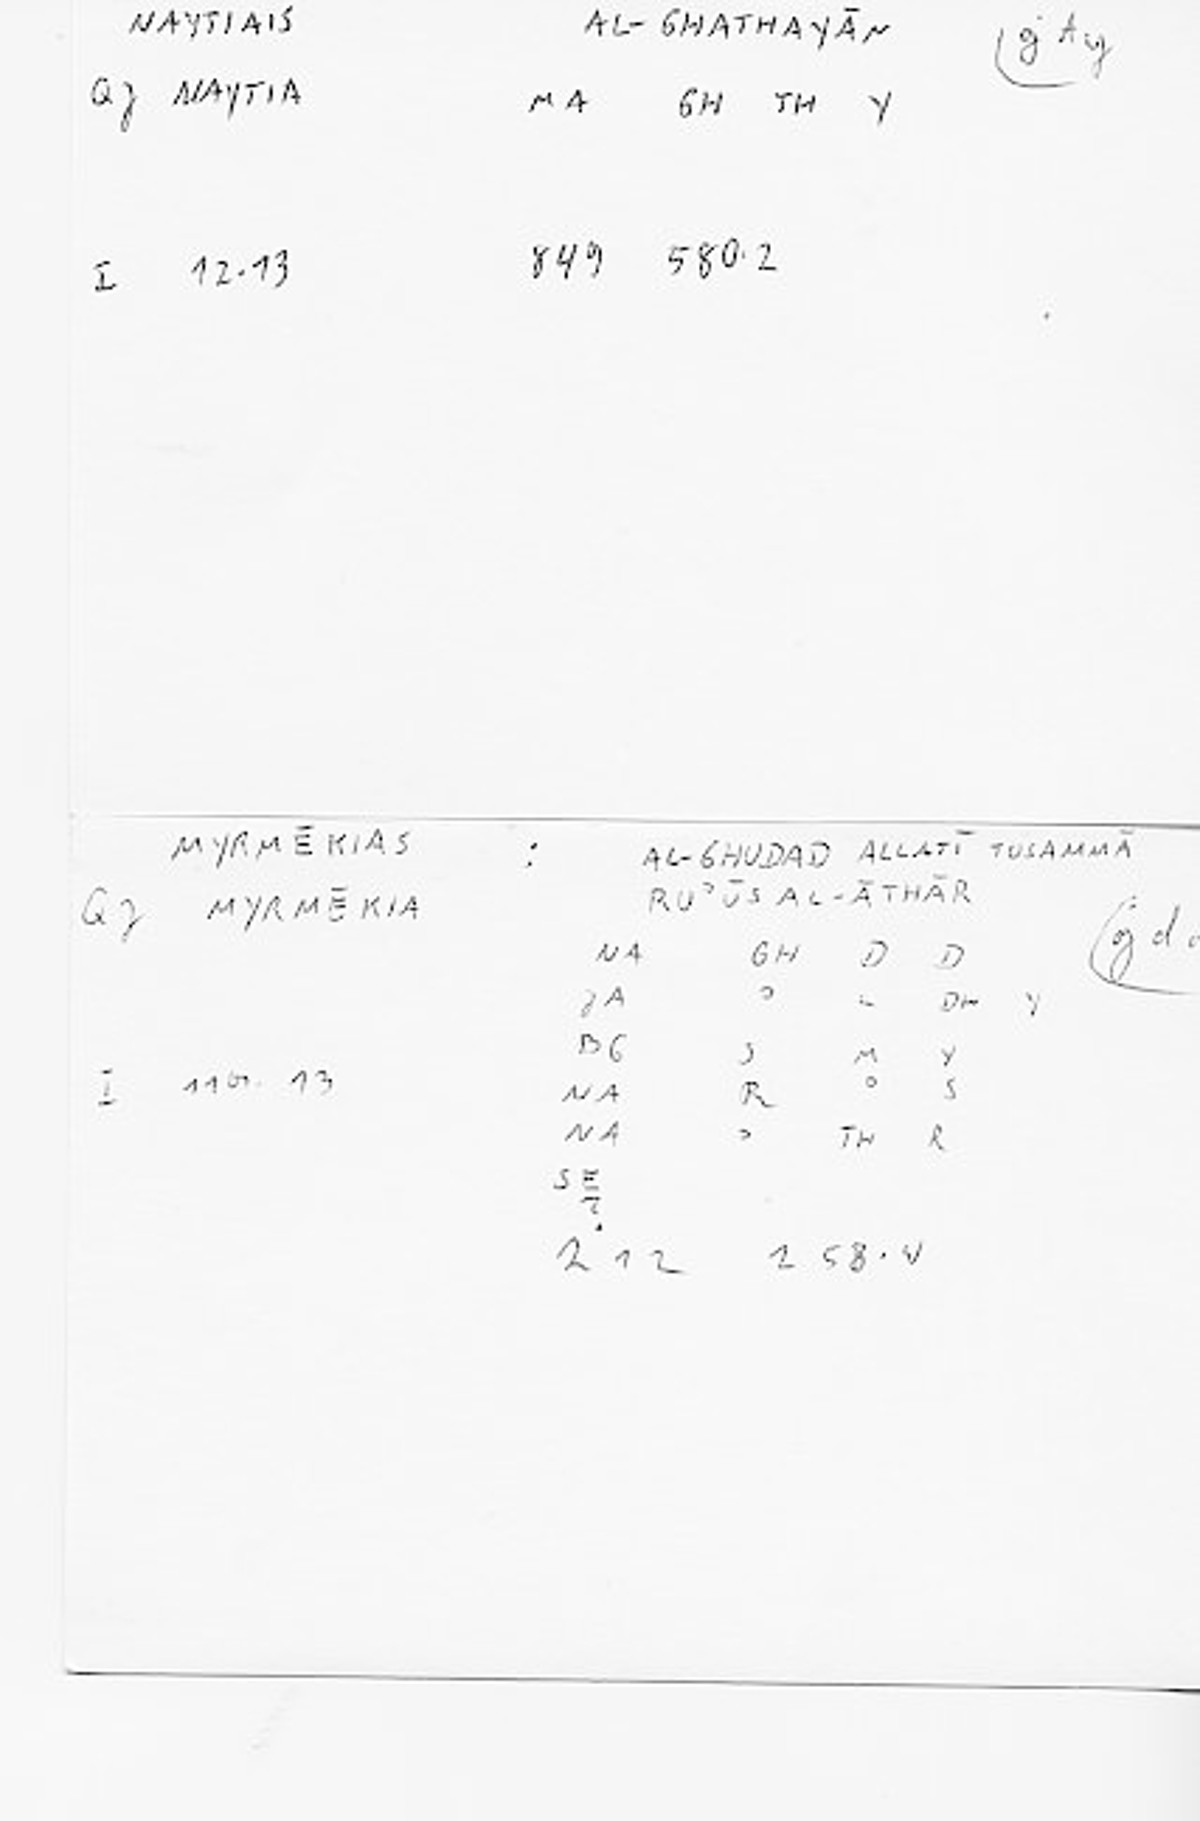 NAYTIAIS AL-GHATHAYĀN ġṯy
Qz NAYTIA MA GH TH Y
I 12.13 849 580.2
MYRMĒKIAS : AL-GHUDAD ALLATĪ TUSAMMĀ
Qz MYRMĒKIA RUʾŪS AL-ĀTHĀR ġd
NA GH D D
zA ʾ L DH Y
BG S M Y
I 13 NA R ʾ S
NA ʾ TH R
SE
212 258.4